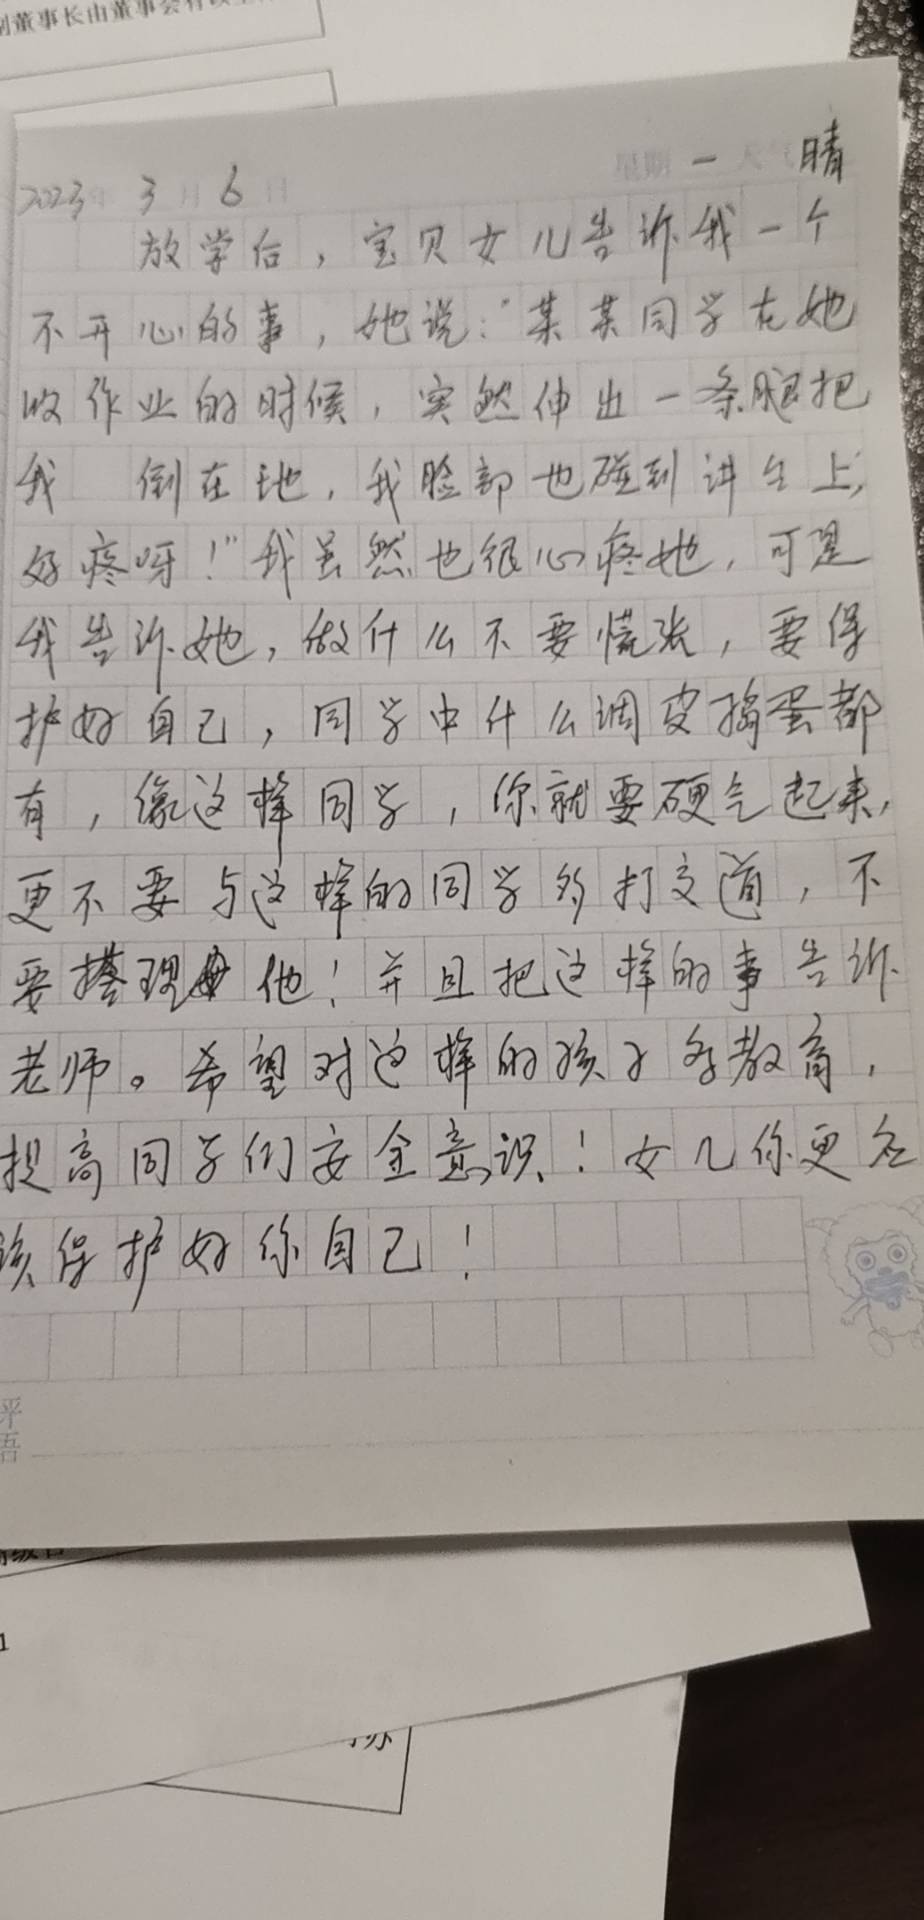 副董事长由董事会
2023年 3月 6日 星期一 天气晴
放学后，宝贝女儿告诉我一个
不开心的事，她说："某某同学在她
收作业的时候，突然伸出一条腿把
我 倒在地，我脸部也碰到讲台上，
好疼呀！"我虽然也很心疼她，可是
我告诉她，做什么不要慌张，要保
护好自己，同学中什么调皮捣蛋都
有，像这样同学，你就要硬气起来，
更不要与这样的同学多打交道，不
要搭理他！并且把这样的事告诉
老师。希望对这样的孩子多教育，
提高同学们安全意识！女儿你更应
该保护好你自己！
评语
1